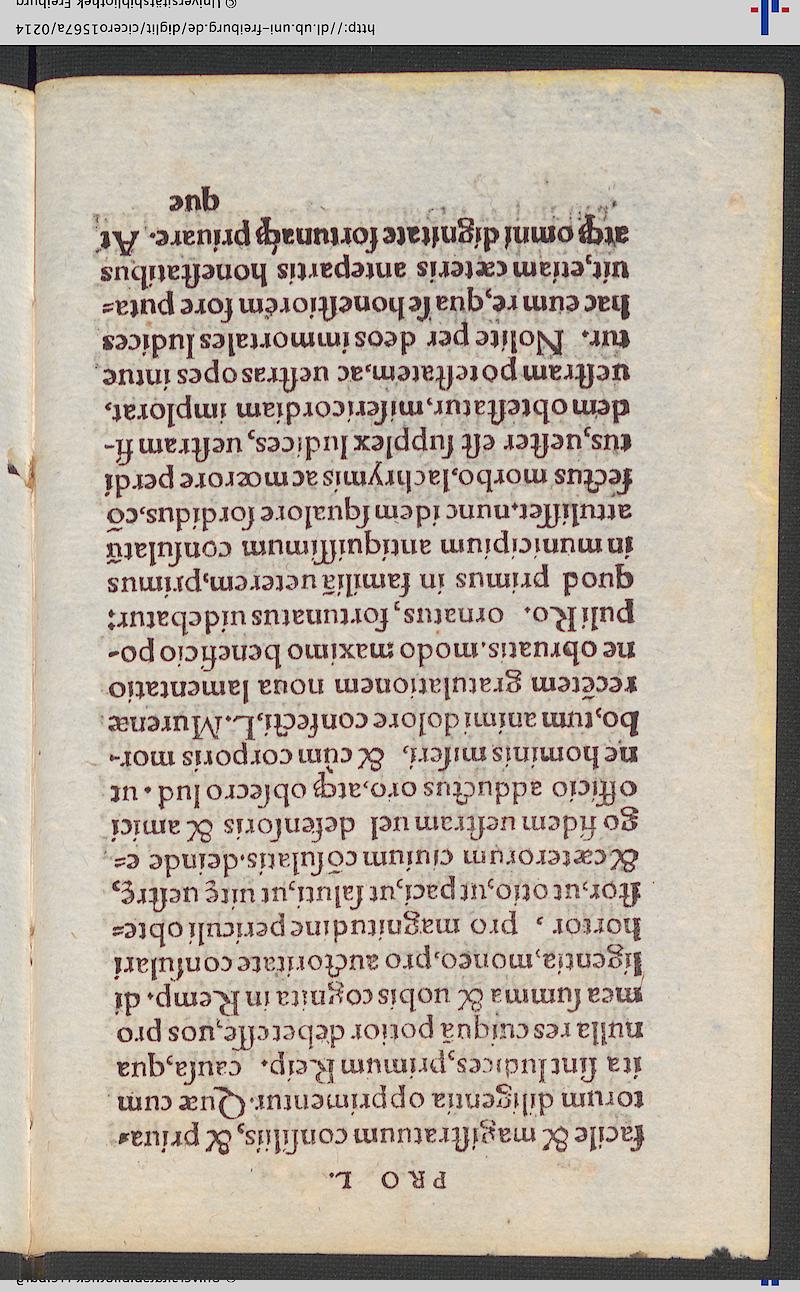 PRO L.
facile & magistratuum consiliis, & priua-
torum diligentia opprimentur. Quæ cum
ita sint Iudices, primum Reip. causa, qua
nulla res cuiquã potior debet esse, uos pro
mea summa & uobis cognita in Remp. di
ligentia, moneo, pro auctoritate consulari
hortor, pro magnitudine periculi obte-
stor, ut otio, ut paci, ut saluti, ut uitę uestrę,
& cæterorum ciuium cõsulatis. deinde e-
go fidem uestram uel defensoris & amici
officio adductus oro, atq; obsecro Iud. ut
ne hominis miseri, & cùm corporis mor-
bo, tum animi dolore confecti, L. Murenæ
recẽtem gratulationem noua lamentatio
ne obruatis. modo maximo beneficio po-
puli Ro. ornatus, fortunatus uidebatur:
quod primus in familiã ueterem, primus
in municipium antiquissimum consulatũ
attulisset. nunc idem squalore sordidus, cõ
fectus morbo, lachrymis ac mœrore perdi
tus, uester est supplex Iudices, uestram fi-
dem obtestatur, misericordiam implorat,
uestram potestatem, ac uestras opes intue
tur. Nolite per deos immortales Iudices
hac eum re, qua se honestiorèm fore puta-
uit, etiam cæteris ante partis honestatibus
atq; omni dignitate fortunaq; priuare. At
que
http://dl.ub.uni-freiburg.de/diglit/cicero1567a/0214
© Universitätsbibliothek Freiburg